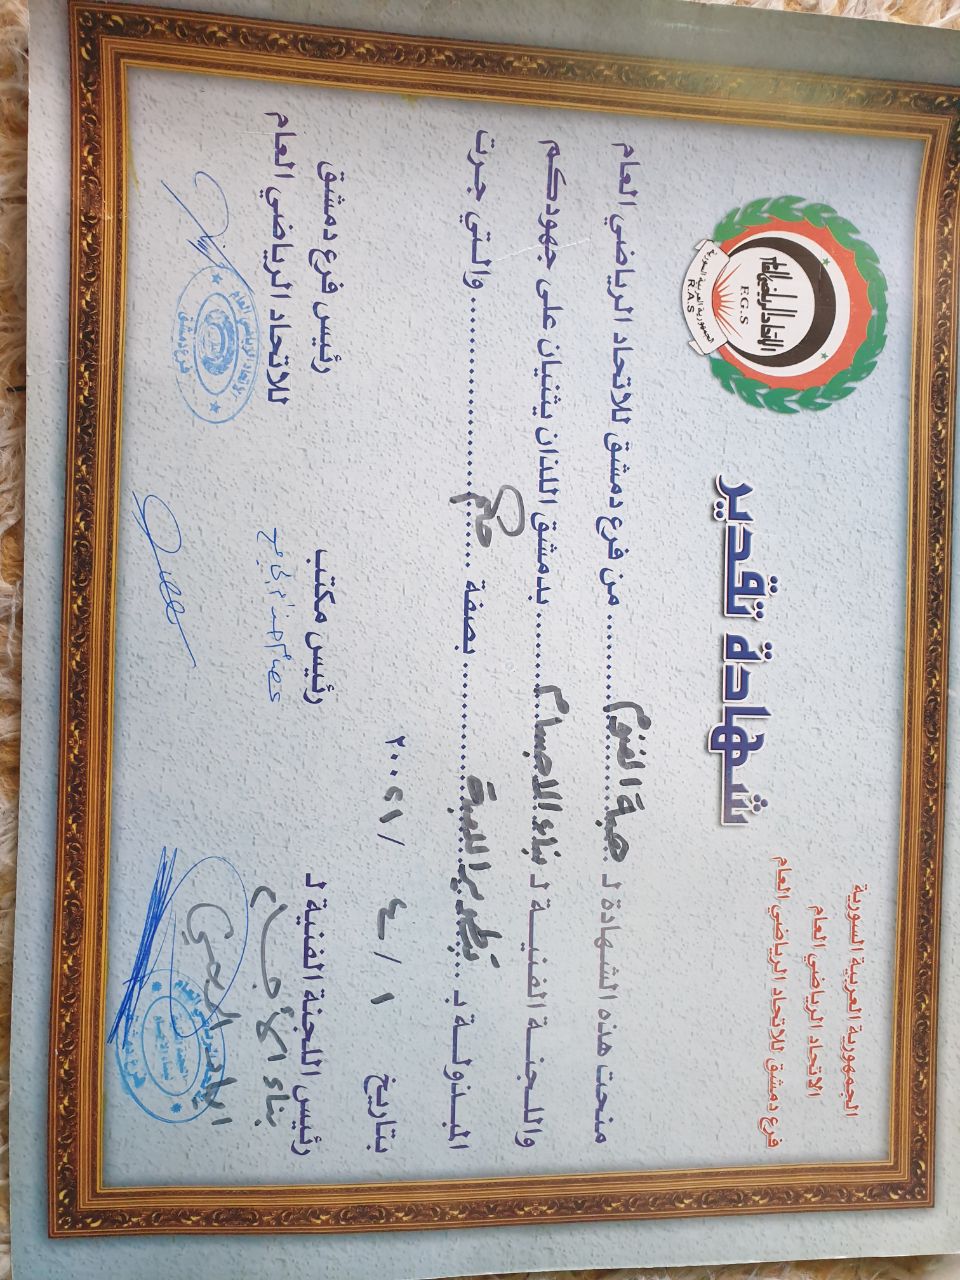 الجمهورية العربية السورية
الاتحاد الرياضي العام
فرع دمشق للاتحاد الرياضي العام
الاتحاد الرياضي العام
F.G.S
الجمهورية العربية السورية
R.A.S
شهادة تقدير
منحت هذه الشهادة لـ هبة الغنوم من فرع دمشق للاتحاد الرياضي العام
واللجنة الفنية لـ بناء الاجسام بدمشق اللذان يثنيان على جهودكم
المبذولة بـ بصفة حكم والتي جرت
بتاريخ ١ / ٤ / ٢٠٠٢١
رئيس اللجنة الفنية لـ
بناء الأجسام
رئيس مكتب
رئيس فرع دمشق
للاتحاد الرياضي العام